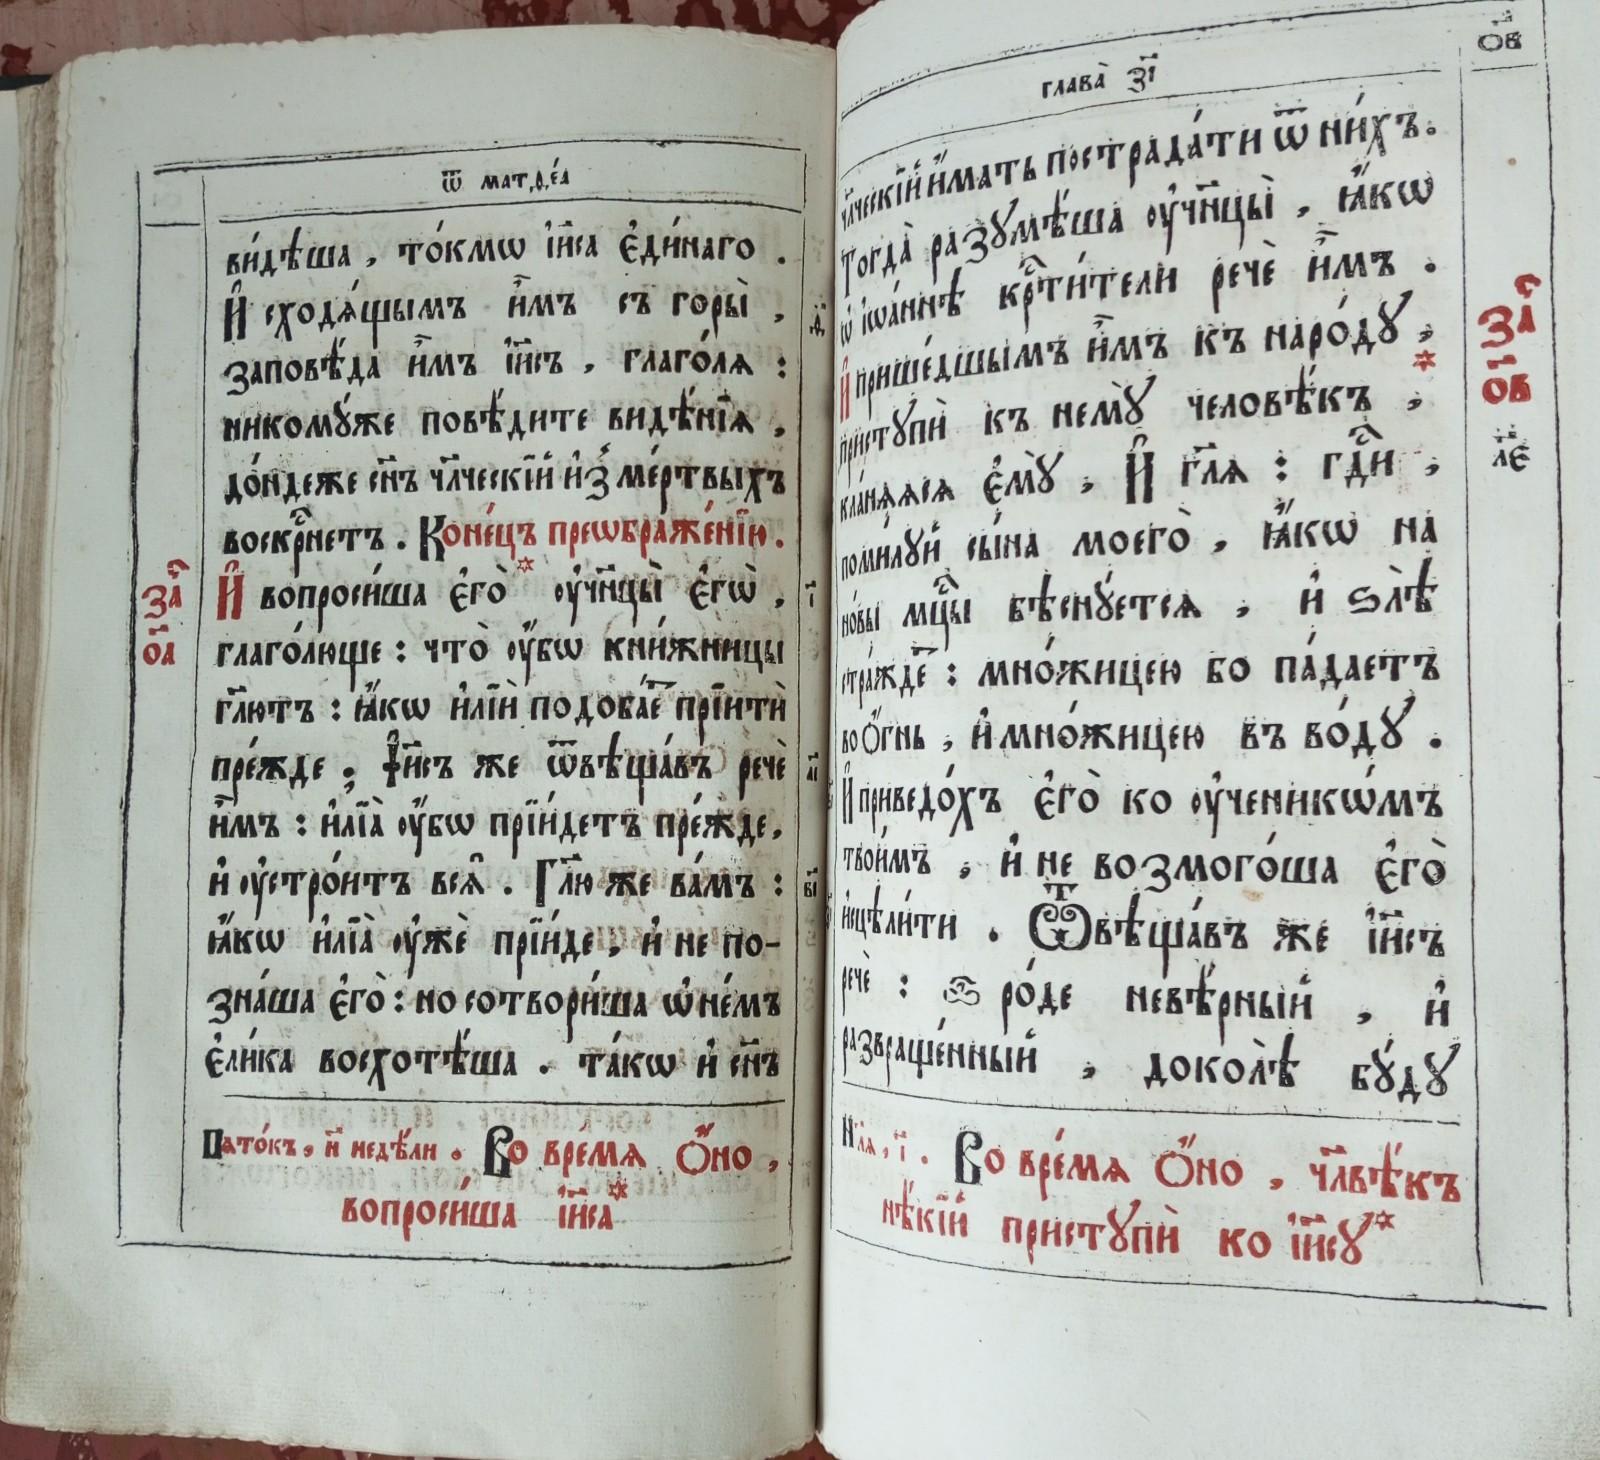 ѿ матѳеа
ви́дѣша , то́кмѡ і҆и҃са є҆ди́наго .
И҆ сходѧ́щымъ и҆̀мъ съ горы̀ ,
заповѣ́да и҆̀мъ і҆и҃съ , глаго́лѧ :
никомꙋ́же повѣ́дите видѣ́нїѧ ,
до́ндеже сн҃ъ чл҃ческїй и҆з̾ ме́ртвыхъ
воскрⷭ҇нетъ . Коне́цъ преѡбраже́нїю .
И҆ вопроси́ша є҆го̀ * ᲂу҆чн҃цы̀ є҆гѡ̀ ,
глаго́люще : что̀ ᲂу҆́бѡ кни́жницы
гл҃ютъ : ꙗ҆́кѡ и҆лїѝ подоба́еⷮ прїитѝ
пре́жде ; І҆и҃съ же ѿвѣща́въ речѐ
и҆̀мъ : и҆лїа̀ ᲂу҆́бѡ прїи́детъ пре́жде ,
и҆ ᲂу҆стро́итъ всѧ̑ . Гл҃ю же ва́мъ :
ꙗ҆́кѡ и҆лїа̀ ᲂу҆жѐ прїи́де , и҆ не по-
зна́ша є҆го̀ : но сотвори́ша ѡ҆ не́мъ
є҆ли́ка восхотѣ́ша . та́кѡ и҆ сн҃ъ
заⷱ҇
о҃а
ѳ҃
і҃
а҃і
в҃і
Пѧто́къ , и҃ недѣ́ли . Во вре́мѧ О҆́но ,
вопроси́ша і҆и҃са *
глава̀ з҃і
о҃в
чл҃ческїй и҆́мать пострада́ти ѿ ни́хъ .
Тогда̀ разꙋмѣ́ша ᲂу҆чн҃цы̀ , ꙗ҆́кѡ
ѡ҆ і҆ѡа́ннѣ крⷭ҇ти́тели речѐ и҆̀мъ .
И҆ прише́дшымъ и҆̀мъ къ наро́дꙋ ,
пристꙋпѝ къ немꙋ̀ человѣ́къ , *
кла́нѧѧсѧ є҆мꙋ̀ , И҆ гл҃ѧ : гдⷭ҇и ,
поми́лꙋй сы́на моегѡ̀ , ꙗ҆́кѡ на
но́вы мцⷭ҇ы бѣснꙋ́етсѧ , и҆ ѕлѣ̀
стра́ждеⷮ : мно́жицею бо па́даетъ
во О҆́гнь , и҆ мно́жицею въ во́дꙋ .
И҆ приведо́хъ є҆го̀ ко ᲂу҆ченикѡ́мъ
твои́мъ , и҆ не возмого́ша є҆го̀
и҆сцѣли́ти . Ѿвѣща́въ же і҆и҃съ
речѐ : ѽ ро́де невѣ́рный , и҆
развраще́нный , доко́лѣ бꙋ́дꙋ
заⷱ҇
о҃в
л҃є
Нлѧ , і҃ . Во вре́мѧ О҆́но , чл҃вѣ́къ
нѣ́кїй пристꙋпѝ ко і҆и҃сꙋ *